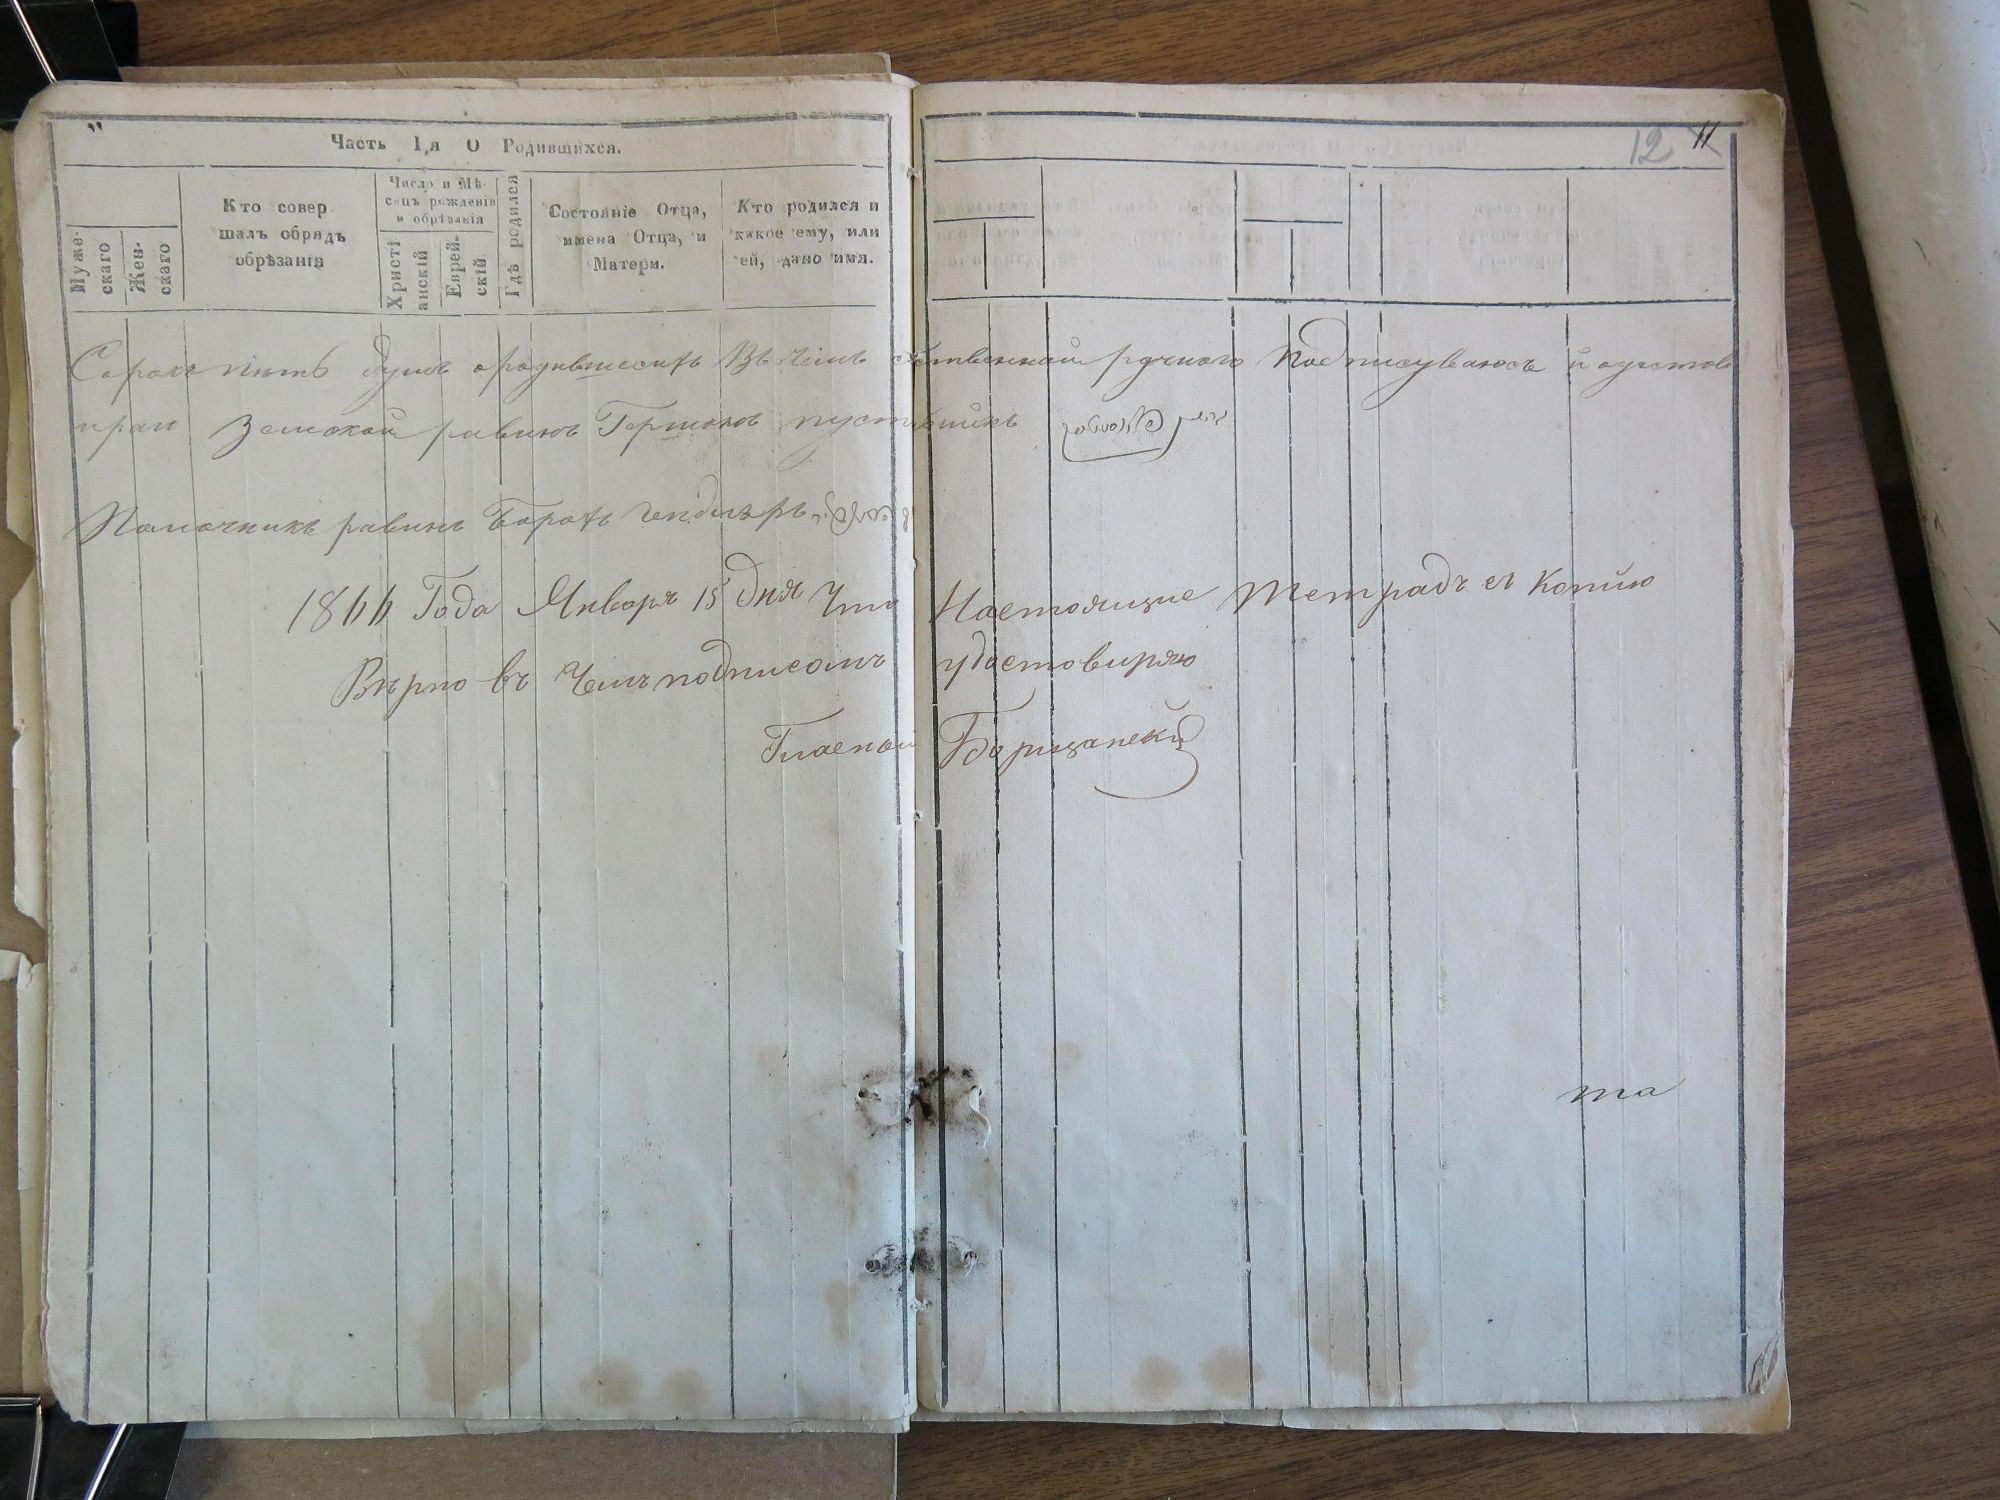 Часть 1,я О Родившихся.
12 11
Муже-
скаго
Жен-
скаго
Кто совер
шалъ обрядъ
обрѣзанія
Число и Мѣ-
сяцъ рожденія
и обрѣзанія
Христі
анскій
Еврей-
скій.
Гдѣ родился
Состояніе Отца,
имена Отца, и
Матери.
Кто родился и
какое ему, или
ей, дано имя.
Сорокъ пять душъ ородившисихъ Въ чемъ подписуваюсь
Земской равинъ Гершонъ
Помочникъ равинъ Борохъ
1866 Года Января 15 дня Что Настоящие Тетрадъ съ Копию
Вѣрно въ Чемъ подписомъ удостовиряю
Гласной
та